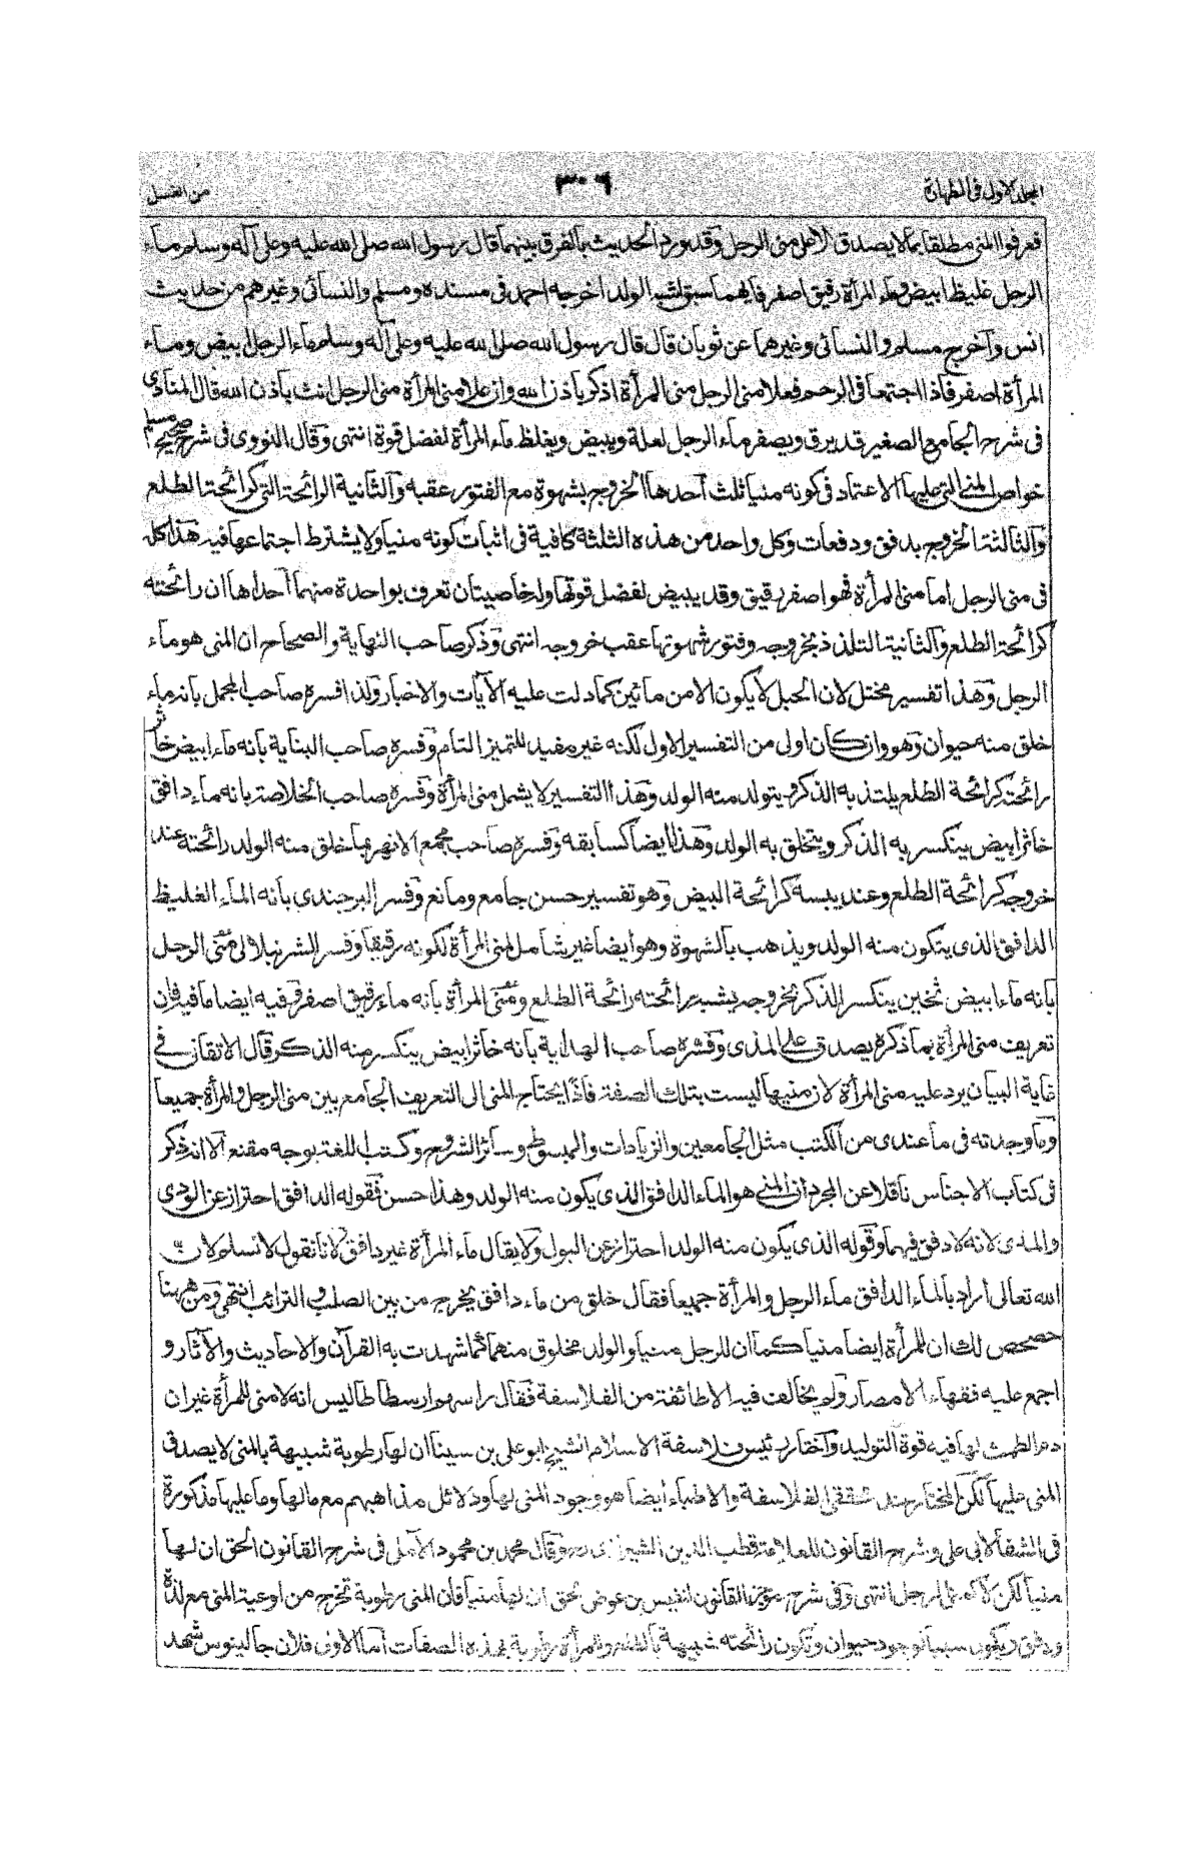 المجلد الاول فى الطهارة
٣٠٦
من الغسل
فعرفوا المنى مطلقا بما لا يصدق الا على منى الرجل وقد ورد الحديث بالفرق بينهما قال رسول الله صلى الله عليه وعلى آله وسلم ماء
الرجل غليظ ابيض وماء المرأة رقيق اصفر فايهما سبق اشبه الولد اخرجه احمد فى مسنده ومسلم والنسائى وغيرهم من حديث
انس وآخرج مسلم والنسائى وغيرهما عن ثوبان قال قال رسول الله صلى الله عليه وعلى آله وسلم ماء الرجل ابيض وماء
المرأة اصفر فاذا اجتمعا فى الرحم فعلا منى الرجل منى المرأة اذكر باذن الله وان علا منى المرأة منى الرجل انث باذن الله قال المناوى
فى شرح الجامع الصغير قد يرق ويصفر ماء الرجل لعلة ويبيض ويغلظ ماء المرأة لفضل قوة انتهى وقال النووى فى شرح صحيح مسلم
خواص المنى التى عليها الاعتماد فى كونه منيا ثلث أحدها الخروج بشهوة مع الفتور عقبه وآلثانية الرائحة التى كرائحة الطلع
وآلثالثة الخروج بدفق ودفعات وكل واحد من هذه الثلثة كافية فى اثبات كونه منيا ولا يشترط اجتماعها فيه هذا كله
فى منى الرجل اما منى المرأة فهو اصفر رقيق وقد يبيض لفضل قوتها وله خاصيتان تعرف بواحدة منهما احداها ان رائحته
كرائحة الطلع وآلثانية التلذذ بخروجه وفتور شهوتها عقب خروجه انتهى وذكر صاحب النهاية والصحاح ان المنى هو ماء
الرجل وهذا تفسير مختل لان الحبل لا يكون الا من مائين كما دلت عليه الآيات والاخبار ولذا فسره صاحب المجمل بانه ماء
خلق منه حيوان وهو وان كان اولى من التفسير الاول لكنه غير مفيد للتميز التام وفسره صاحب البناية بانه ماء ابيض خاثر
رائحته كرائحة الطلع يلتذ به الذكر ويتولد منه الولد وهذا التفسير لا يشمل منى المرأة وفسره صاحب الخلاصة بانه ماء دافق
خاثر ابيض ينكسر به الذكر ويتخلق به الولد وهذا ايضا كسابقه وفسره صاحب مجمع الانهر بما خلق منه الولد رائحته عند
خروجه كرائحة الطلع وعند يبسه كرائحة البيض وهو تفسير حسن جامع ومانع وفسره البرجندى بانه الماء الغليظ
الدافق الذى يتكون منه الولد ويذهب بالشهوة وهو ايضا غير شامل لمنى المرأة لكونه رقيقا وفسر الشرنبلالى منى الرجل
بانه ماء ابيض ثخين ينكسر الذكر بخروجه يشبه رائحته رائحة الطلع ومنى المرأة بانه ماء رقيق اصفر وفيه ايضا ما فيه فان
تعريف منى المرأة بما ذكره يصدق على المذى وفسره صاحب الهداية بانه خاثر ابيض ينكسر منه الذكر قال الاتقانى فى
غاية البيان يرد عليه منى المرأة لان منيها ليست بتلك الصفة فاذا يحتاج المنى الى التعريف الجامع بين منى الرجل والمرأة جميعا
وما وجدته فى ما عندى من الكتب مثل الجامعين والزيادات والمبسوط وسائر الشروح وكتب اللغة بوجه مقنع الا انه ذكر
فى كتاب الاجناس ناقلا عن المجرد ان المنى هو الماء الدافق الذى يكون منه الولد وهذا حسن فقوله الدافق احتراز عن الودى
والمذى لانه لا دفق فيهما وقوله الذى يكون منه الولد احتراز عن البول ولا يقال ماء المرأة غير دافق لانا نقول لا نسلم لان
الله تعالى اراد بالماء الدافق ماء الرجل والمرأة جميعا فقال خلق من ماء دافق يخرج من بين الصلب والترائب انتهى ومن ههنا
حصحص لك ان للمرأة ايضا منيا كما ان للرجل منيا والولد مخلوق منهما كما شهدت به القرآن والاحاديث والآثار و
اجمع عليه فقهاء الامصار ولم يخالف فيه الا طائفة من الفلاسفة فقال راسهم ارسطاطاليس انه لا منى للمرأة غير ان
دم الطمث لها فيه قوة التوليد وآختار رئيس فلاسفة الاسلام الشيخ ابو على بن سينا ان لها رطوبة شبيهة بالمنى لا يصدق
المنى عليها لكن المختار عند محققى الفلاسفة والاطباء ايضا هو وجود المنى لها ودلائل مذاهبهم مع مالها وما عليها مذكورة
فى الشفا لابى على وشرح القانون للعلامة قطب الدين الشيرازى وقال محمد بن محمود الآملى فى شرح القانون الحق ان لها
منيا لكن لا كما للرجل انتهى وفى شرح موجز القانون لنفيس بن عوض الحق ان لها منيا فان المنى رطوبة تخرج من اوعية المنى مع لذة
ودفق ويكون سببا لوجود حيوان وتكون رائحته شبيهة بالطلع وللمرأة رطوبة بهذه الصفات اما الاولى فلان جالينوس شهد